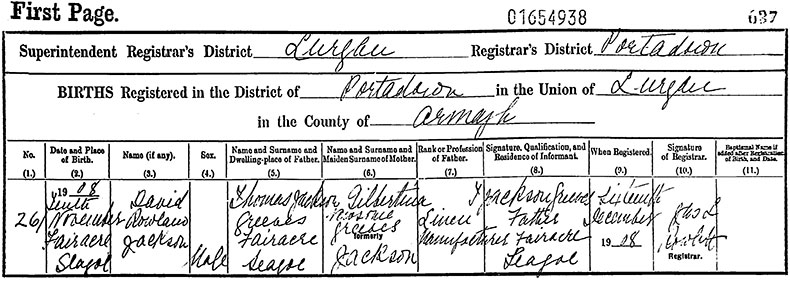 First Page. 01654938 637
Superintendent Registrar's District Lurgan Registrar's District Portadown
BIRTHS Registered in the District of Portadown in the Union of Lurgan
in the County of Armagh
No. Date and Place of Birth. Name (if any). Sex. Name and Surname and Dwelling-place of Father. Name and Surname and Maiden Surname of Mother. Rank or Profession of Father. Signature, Qualification, and Residence of Informant. When Registered. Signature of Registrar. Baptismal Name if added after Registration of Birth, and Date.
(1.) (2.) (3.) (4.) (5.) (6.) (7.) (8.) (9.) (10.) (11.)
1908
Tenth David Thomas Jackson Gilbertina T Jackson Greeves
261 November Rowland Greeves Greeves Linen Father December
Fairacre Jackson Fairacre formerly Manufacturer Fairacre 1908
Seagoe Male Seagoe Jackson Seagoe Registrar.